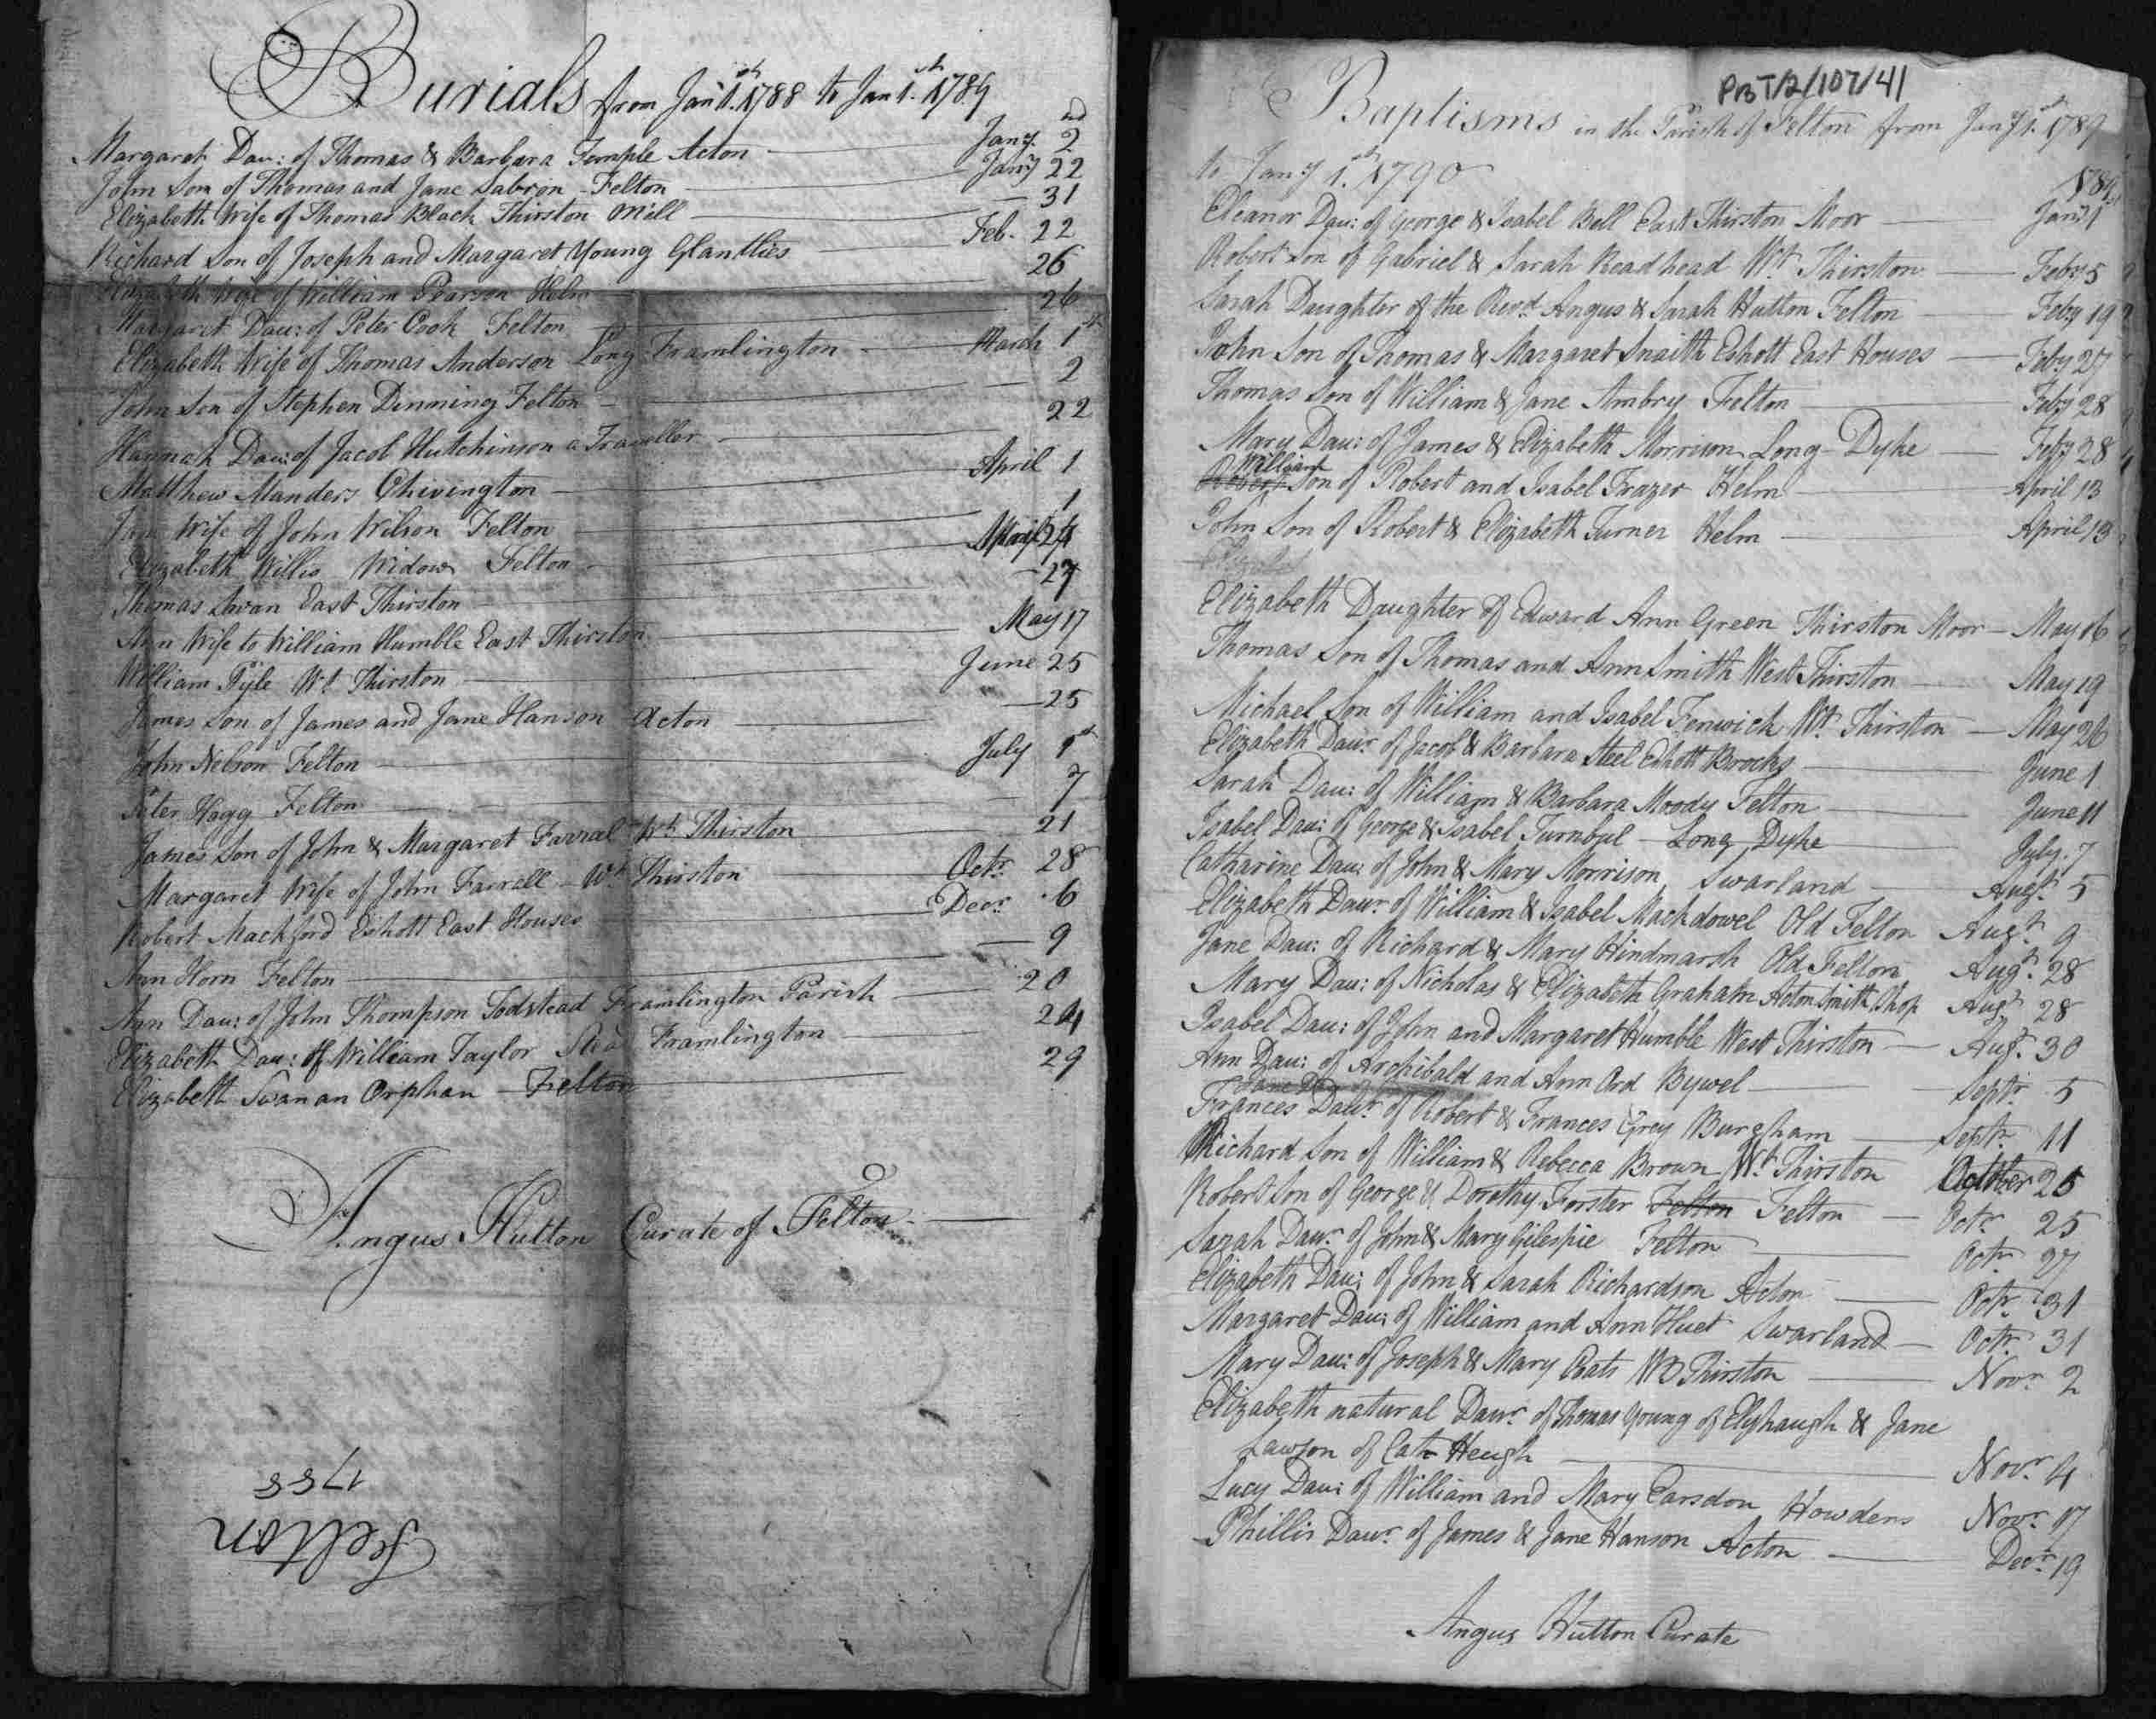 Burials from Jany 1st. 1788 to Jan 1st. 1789
Margaret Dau: of Thomas & Barbara Temple Acton — Jany. 2nd
John Son of Thomas and Jane Sabron - Felton — Jany 22
Elizabeth Wife of Thomas Black Thirston Mill — 31
Richard Son of Joseph and Margaret Young Glantlies — Feb. 22
Elizabeth Wife of William Pearson Helm — 26
Margaret Dau: of Peter Cook Felton — 26
Elizabeth Wife of Thomas Anderson Long Framlington — March 1st
John Son of Stephen Dinning Felton — 2
Hannah Dau: of Jacob Hutchinson a Traveller — 22
Matthew Manders Chivington — April 1
Jane Wife of John Wilson Felton — 1
Elizabeth Willis Widow Felton — April 24
Thomas Swan East Thirston — 27
Ann Wife to William Humble East Thirston — May 17
William Pyle Wt Thirston — June 25
James Son of James and Jane Hanson Acton — 25
John Nelson Felton — July 1st
Peter Hogg Felton — 7
James Son of John & Margaret Farral Wt Thirston — 21
Margaret Wife of John Farrell - Wt Thirston — Octr. 28
Robert Mackford Eshott East Houses — Decr. 6
Ann Horn Felton — 9
Ann Dau: of John Thompson Todstead Framlington Parish — 20
Elizabeth Dau: of William Taylor Framlington — 24
Elizabeth Swan an Orphan - Felton — 29
Angus Hutton Curate of Felton
Felton
1788
PBT/2/107/41
Baptisms in the Parish of Felton from Jany 1st. 1789
to Jany 1st. 1790
1789
Eleanor Dau: of George & Isabel Bell East Thirston Moor — Jany 1st
Robert Son of Gabriel & Sarah Readhead Wt. Thirston — Feby 5
Sarah Daughter of the Revd. Angus & Sarah Hutton Felton — Feby 19
John Son of Thomas & Margaret Snaith Eshott East Houses — Feby 27
Thomas Son of William & Jane Ambry Felton — Feby 28
Mary Dau: of James & Elizabeth Morrison Long-Dyke — Feby 28
William
Robert Son of Robert and Isabel Frazer Helm — April 13
John Son of Robert & Elizabeth Turner Helm — April 13
Elizabeth Daughter of Edward Ann Green Thirston Moor — May 16
Thomas Son of Thomas and Ann Smith West Thirston — May 19
Michael Son of William and Isabel Fenwick Wt. Thirston — May 26
Elizabeth Daur. of Jacob & Barbara Steel Eshott Brocks — June 1
Sarah Dau: of William & Barbara Moody Felton — June 11
Isabel Dau: of George & Isabel Turnbul - Long Dyke — July. 7
Catharine Dau: of John & Mary Morrison Swarland — Augt. 5
Elizabeth Daur. of William & Isabel Mackdowel Old Felton Augt. 9
Jane Dau: of Richard & Mary Hindmarsh Old Felton Augt. 28
Mary Dau: of Nicholas & Elizabeth Graham Acton Smith Shop Augt. 28
Isabel Dau: of John and Margaret Humble West Thirston — Augt. 30
Ann Dau: of Archibald and Ann Ord Bywel — Septr. 5
Frances Daur. of Robert & Frances Grey Burgham — Septr. 11
Richard Son of William & Rebecca Brown Wt. Thirston October 25
Robert Son of George & Dorothy Forster Felton Felton — Octr. 25
Sarah Daur. of John & Mary Gilespie Felton — Octr. 27
Elizabeth Dau: of John & Sarah Richardson Acton — Octr. 31
Margaret Dau: of William and Ann Huet Swarland — Octr. 31
Mary Dau: of Joseph & Mary Coats Wt Thirston — Novr. 2
Elizabeth natural Daur. of Thomas Young of Elyhaugh & Jane
Lawson of Cat Heugh — Novr. 4
Lucy Dau: of William and Mary Carsdon Howdens Novr. 17
Phillis Daur. of James & Jane Hanson Acton — Decr. 19
Angus Hutton Curate